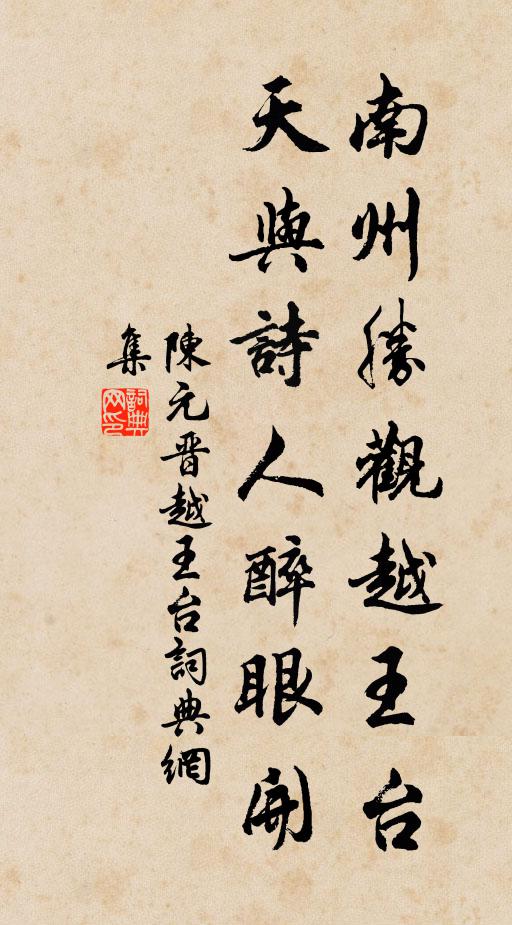 南州勝觀越王台
天與詩人醉眼開
陳元晋越王台詞典網
集
詞典
网印